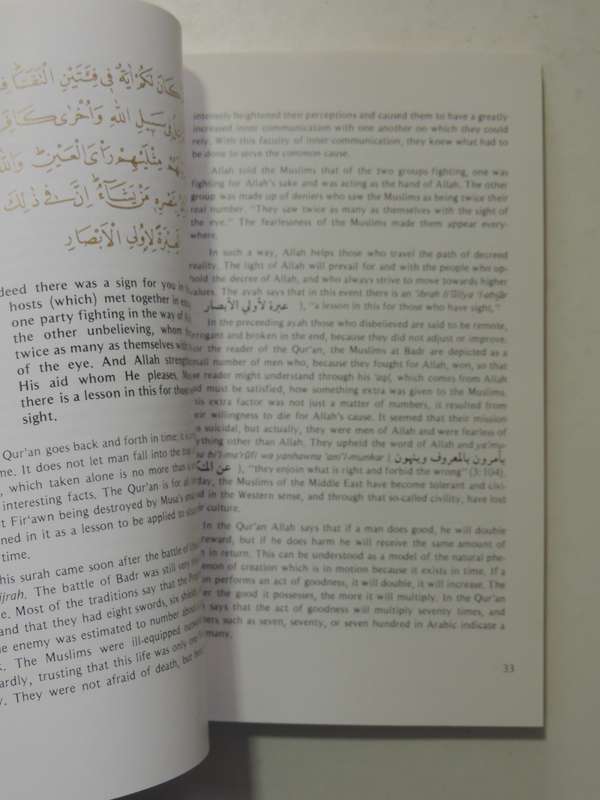 كَانَ لَكُمُ ءَايَةٌ فِي فِئَتَيْنِ الْتَقَتَا
سَبِيلِ اللَّهِ وَأُخْرَىٰ
مِثْلَيْهِمْ رَأْيَ الْعَيْنِ
مَنْ يَشَاءُ إِنَّ فِي ذَٰلِكَ
لَعِبْرَةً لِأُولِي الْأَبْصَارِ
deed there was a sign for you in
hosts (which) met together in
one party fighting in the way of
the other unbelieving, whom
twice as many as themselves with
of the eye. And Allah
His aid whom He pleases.
there is a lesson in this for
sight.
Qur'an goes back and forth in time; it
me. It does not let man fall into the
, which taken alone is no more than
interesting facts. The Qur'an is for all
t Fir'awn being destroyed by Musa's
ned in it as a lesson to be applied to
time.
his surah came soon after the battle of
ijrah. The battle of Badr was still very
e. Most of the traditions say that the
and that they had eight swords, six
e enemy was estimated to number
. The Muslims were ill-equipped
ardly, trusting that this life was only
y. They were not afraid of death, but
intensely heightened their perceptions and caused them to have a greatly
increased inner communication with one another on which they could
rely. With this faculty of inner communication, they knew what had to
be done to serve the common cause.
Allah told the Muslims that of the two groups fighting, one was
fighting for Allah's sake and was acting as the hand of Allah. The other
group was made up of deniers who saw the Muslims as being twice their
real number. "They saw twice as many as themselves with the sight of
the eye." The fearlessness of the Muslims made them appear every-
where.
In such a way, Allah helps those who travel the path of decreed
reality. The light of Allah will prevail for and with the people who up-
hold the decree of Allah, and who always strive to move towards higher
values. The ayah says that in this event there is an 'ibrah li'ūliya 'l-abṣār
عبرة لأولي الأبصار ), "a lesson in this for those who have sight,"
In the preceding ayah those who disbelieved are said to be remote,
rrogant and broken in the end, because they did not adjust or improve.
or the reader of the Qur'an, the Muslims at Badr are depicted as a
mall number of men who, because they fought for Allah, won, so that
e reader might understand through his 'aql, which comes from Allah
d must be satisfied, how something extra was given to the Muslims.
is extra factor was not just a matter of numbers, it resulted from
eir willingness to die for Allah's cause. It seemed that their mission
s suicidal, but actually, they were men of Allah and were fearless of
ything other than Allah. They upheld the word of Allah and ya'mu-
a bi'l-ma'rūfi wa yanhawna 'ani'l-munkar ( يأمرون بالمعروف وينهون
عن المنكر ), "they enjoin what is right and forbid the wrong" (3:104).
day, the Muslims of the Middle East have become tolerant and civi-
ed in the Western sense, and through that so-called civility, have lost
ir culture.
In the Qur'an Allah says that if a man does good, he will double
reward, but if he does harm he will receive the same amount of
in return. This can be understood as a model of the natural phe-
enon of creation which is in motion because it exists in time. If a
n performs an act of goodness, it will double, it will increase. The
er the good it possesses, the more it will multiply. In the Qur'an
h says that the act of goodness will multiply seventy times, and
bers such as seven, seventy, or seven hundred in Arabic indicate a
many.
33